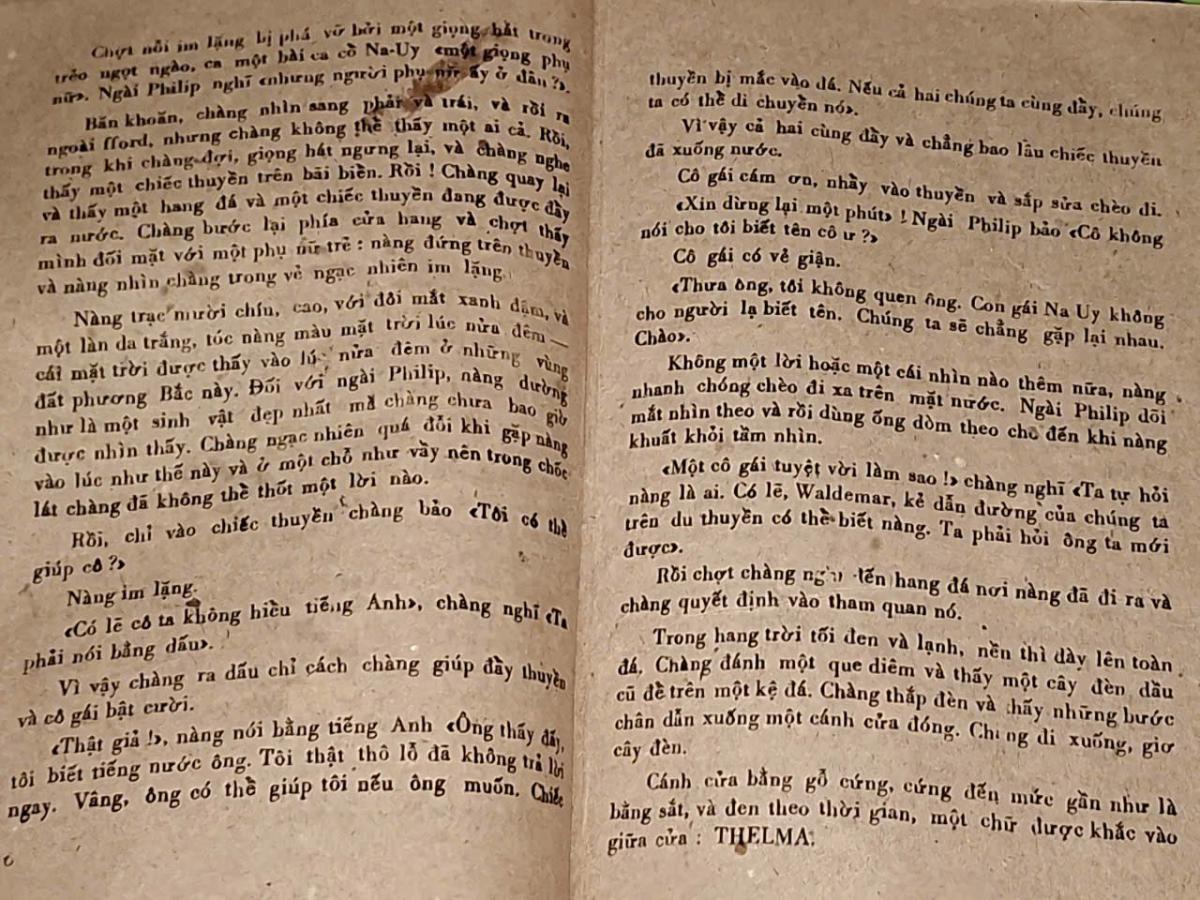 Chợt nỗi im lặng bị phá vỡ bởi một giọng hát trong
trẻo ngọt ngào, ca một bài ca cồ Na-Uy «một giọng phụ
nữ». Ngài Philip nghĩ «nhưng người phụ nữ ấy ở đâu ?».
Băn khoăn, chàng nhìn sang phải và trái, và rồi ra
ngoài fford, nhưng chàng không thề thấy một ai cả. Rồi,
trong khi chàng đợi, giọng hát ngưng lại, và chàng nghe
thấy một chiếc thuyền trên bãi biền. Rồi ! Chàng quay lại
và thấy một hang đá và một chiếc thuyền đang được đầy
ra nước. Chàng bước lại phía cửa hang và chợt thấy
mình đối mặt với một phụ nữ trẻ : nàng đứng trên thuyền
và nàng nhìn chằng trong vẻ ngạc nhiên im lặng.
Nàng trạc mười chín, cao, với đôi mắt xanh đậm, và
một làn da trắng, tóc nàng màu mặt trời lúc nửa đêm —
cái mặt trời được thấy vào lúc nửa đêm ở những vùng
đất phương Bắc này. Đối với ngài Philip, nàng dường
như là một sinh vật đẹp nhất mà chàng chưa bao giờ
được nhìn thấy. Chàng ngạc nhiên quá đỗi khi gặp nàng
vào lúc như thế này và ở một chỗ như vầy nên trong chốc
lát chàng đã không thề thốt một lời nào.
Rồi, chỉ vào chiếc thuyền chàng bảo «Tôi có thề
giúp cô ?»
Nàng im lặng.
«Có lẽ cô ta không hiều tiếng Anh», chàng nghĩ «Ta
phải nói bằng dấu».
Vì vậy chàng ra dấu chỉ cách chàng giúp đầy thuyền
và cô gái bật cười.
«Thật giả !», nàng nói bằng tiếng Anh «Ông thấy đấy,
tôi biết tiếng nước ông. Tôi thật thô lỗ đã không trả lời
ngay. Vâng, ông có thề giúp tôi nếu ông muốn. Chiếc
thuyền bị mắc vào đá. Nếu cả hai chúng ta cùng đầy, chúng
ta có thề di chuyền nó».
Vì vậy cả hai cùng đầy và chẳng bao lâu chiếc thuyền
đã xuống nước.
Cô gái cám ơn, nhầy vào thuyền và sắp sửa chèo đi.
«Xin dừng lại một phút» ! Ngài Philip bảo «Cô không
nói cho tôi biết tên cô ư ?»
Cô gái có vẻ giận.
«Thưa ông, tôi không quen ông. Con gái Na Uy không
cho người lạ biết tên. Chúng ta sẽ chẳng gặp lại nhau.
Chào».
Không một lời hoặc một cái nhìn nào thêm nữa, nàng
nhanh chóng chèo đi xa trên mặt nước. Ngài Philip dõi
mắt nhìn theo và rồi dùng ống dòm theo cho đến khi nàng
khuất khỏi tầm nhìn.
«Một cô gái tuyệt vời làm sao !» chàng nghĩ «Ta tự hỏi
nàng là ai. Có lẽ, Waldemar, kẻ dẫn đường của chúng ta
trên du thuyền có thề biết nàng. Ta phải hỏi ông ta mới
được».
Rồi chợt chàng đến hang đá nơi nàng đã đi ra và
chàng quyết định vào tham quan nó.
Trong hang trời tối đen và lạnh, nền thì dày lên toàn
đá. Chàng đánh một que diêm và thấy một cây đèn dầu
cũ đề trên một kệ đá. Chàng thắp đèn và thấy những bước
chân dẫn xuống một cánh cửa đóng. đi xuống, giơ
cây đèn.
Cánh cửa bằng gỗ cứng, cứng đến mức gần như là
bằng sắt, và đen theo thời gian, một chữ được khắc vào
giữa cửa : THELMA.